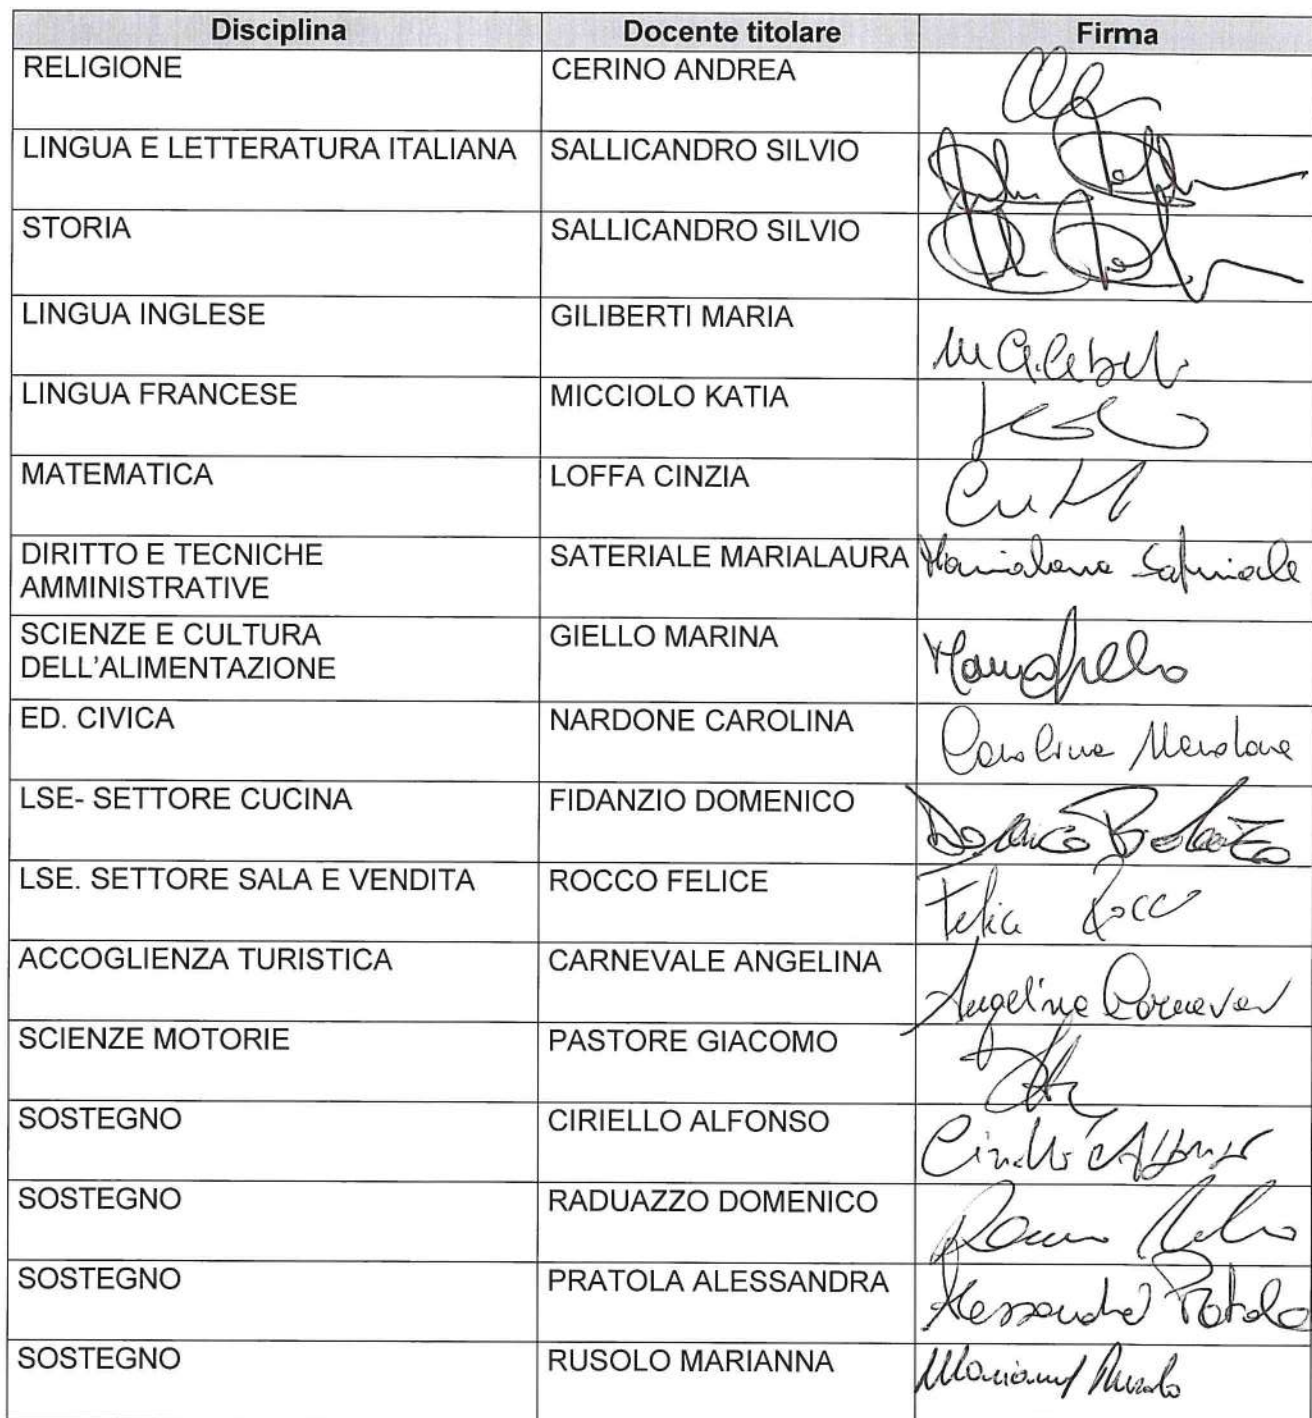 Disciplina Docente titolare Firma
RELIGIONE CERINO ANDREA
LINGUA E LETTERATURA ITALIANA SALLICANDRO SILVIO
STORIA SALLICANDRO SILVIO
LINGUA INGLESE GILIBERTI MARIA
LINGUA FRANCESE MICCIOLO KATIA
MATEMATICA LOFFA CINZIA
DIRITTO E TECNICHE SATERIALE MARIALAURA Marialaura Sateriale
AMMINISTRATIVE
SCIENZE E CULTURA GIELLO MARINA
DELL'ALIMENTAZIONE
ED. CIVICA NARDONE CAROLINA Carolina Nardone
LSE- SETTORE CUCINA FIDANZIO DOMENICO
LSE. SETTORE SALA E VENDITA ROCCO FELICE Felice Rocco
ACCOGLIENZA TURISTICA CARNEVALE ANGELINA Angelina Carnevale
SCIENZE MOTORIE PASTORE GIACOMO
SOSTEGNO CIRIELLO ALFONSO Ciriello Alfonso
SOSTEGNO RADUAZZO DOMENICO
SOSTEGNO PRATOLA ALESSANDRA Alessandra Pratola
SOSTEGNO RUSOLO MARIANNA Marianna Rusolo